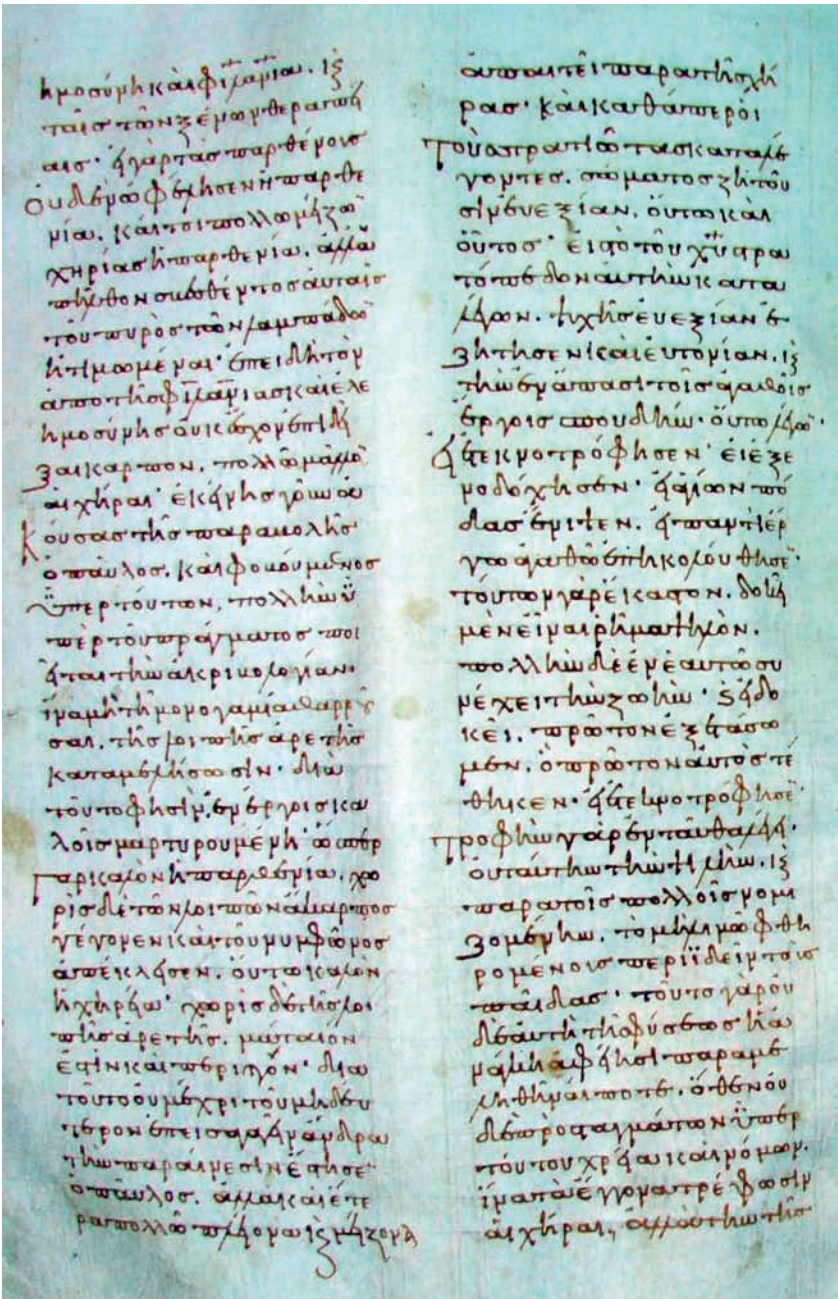 ημοσύνη καὶ φιλανία. κ
ταῖς τῶν ξένων θεραπεί
αις· εἰ γὰρ τὰς παρθένους
οὐδὲν ὠφέλησεν ἡ παρθε
νία. καί τοι πολλῶ μείζω
χηρίας ἡ παρθενία. ἀλλὰ
ἀπῆλθον σβεσθέντος αὐταῖς
τοῦ πυρὸς τῶν λαμπάδω
ἠτιμωμέναι· ἐπειδὴ τὸν
ἀπὸ τῆς φιλανίας καὶ ἐλε
ημοσύνης οὐκ ἔσχον ἐπιδεῖ
ξαι καρπὸν. πολλῶ μᾶλλο
αἱ χῆραι· ἐκείνης γοῦν ἀ
κούσας τῆς παραβολῆς
ὁ παῦλος. καὶ φοβούμενος
ὑπὲρ τούτων, πολλὴν ὑ
πὲρ τοῦ πράγματος ποι
εῖται τὴν ἀκριβολογίαν·
ἵνα μὴ τῆ μονογαμία θαρρού
σαι. τῆς λοιπῆς ἀρετῆς
καταμελήσωσιν· διὰ
τοῦτο φησὶν, ἐν ἔργοις κα
λοῖς μαρτυρουμένη· ὥσπερ
γὰρ καλὸν ἡ παρθενία. χω
ρὶς δὲ τῶν λοιπῶν ἄκαρπος
γέγονεν καὶ τοῦ νυμφῶνος
ἀπέκλεισεν. οὕτω καλὸν
ἡ χηρεία· χωρὶς δὲ τῆς λοι
πῆς ἀρετῆς. μάταιον
ἐστὶν καὶ περιττὸν· διὰ
τοῦτο οὐ μέχρι τοῦ μὴ δεύ
τερον ἐπεισαγαγεῖν ἄνδρα
τὴν παραίνεσιν ἔστησεν
ὁ παῦλος. ἀλλὰ καὶ ἕτε
ρα πολλῶ πλείονα κ μείζονα
ἀπαιτεῖ παρὰ τῆς χή
ρας· καὶ καθάπερ οἱ
τοὺς στρατιώτας καταλέ
γοντες. σώματος ζητοῦ
σιν εὐεξίαν. οὕτω καὶ
οὗτος· εἰς τὸ τοῦ χυ στρα
τόπεδον αὐτὴν κατα
λέγων. ψυχῆς εὐεξίαν ἐ
ζήτησεν καὶ εὐτονίαν. κ
τὴν ἐν ἅπασι τοῖς ἀγαθοῖς
ἔργοις σπουδήν· οὕτω λέγω
εἰ ἐτεκνοτρόφησεν· εἰ ἐξε
νοδόχησεν· εἰ ἁγίων πό
δας ἔνιψεν. εἰ παντὶ ἔρ
γω ἀγαθῶ ἐπηκολούθησε·
τούτων γὰρ ἕκαστον. δοκεῖ
μὲν εἶναι ῥῆμα ψιλὸν.
πολλὴν δὲ ἐν ἑαυτῶ συ
νέχει τὴν ζωήν· κ εἰ δο
κεῖ. πρῶτον ἐξετάσω
μεν. ὃ πρῶτον αὐτὸς τέ
θηκεν· εἰ ἐτεκνοτρόφησε·
τροφὴν γὰρ ἐνταῦθα λέγει·
οὐ ταύτην τὴν ψιλὴν. κ
παρὰ τοῖς πολλοῖς νομι
ζομένην. τὸ μὴ λιμῶ φθει
ρομένοις περιϊδεῖν τοὺς
παῖδας· τοῦτο γὰρ οὐ
δὲ αὐτὴ τῆς φύσεως ἡ ἀ
νάγκη ἀφίησι παραμε
ληθῆναι ποτὲ. ὅθεν οὐ
δὲ προσταγμάτων ὑπὲρ
τούτου χρεία καὶ νόμων.
ἵνα τὰ ἔγγονα τρέφωσιν
αἱ χῆραι, ἀλλὰ τὴν τῆς